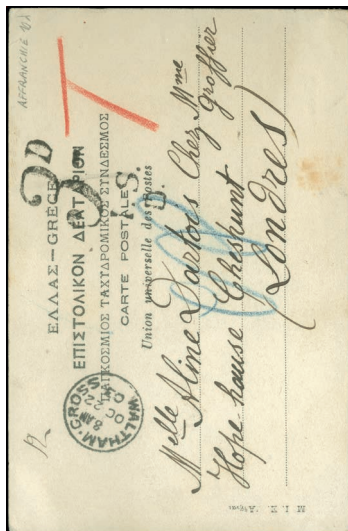 AFFRANCHIE
T
ΕΛΛΑΣ—GRÈCE
3D
ΕΠΙΣΤΟΛΙΚΟΝ ΔΕΛΤΑΡΙΟΝ
ΠΑΓΚΟΣΜΙΟΣ ΤΑΧΥΔΡΟΜΙΚΟΣ ΣΥΝΔΕΣΜΟΣ
CARTE POSTALE
Union universelle des Postes
WALTHAM CROSS
8 AM
OC 2
Melle Aline Dartois Chez Mme Groffier
Hope-house Cheshunt
(Londres)